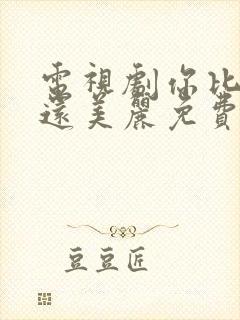 電視劇你比
遠美麗免費
豆豆匠